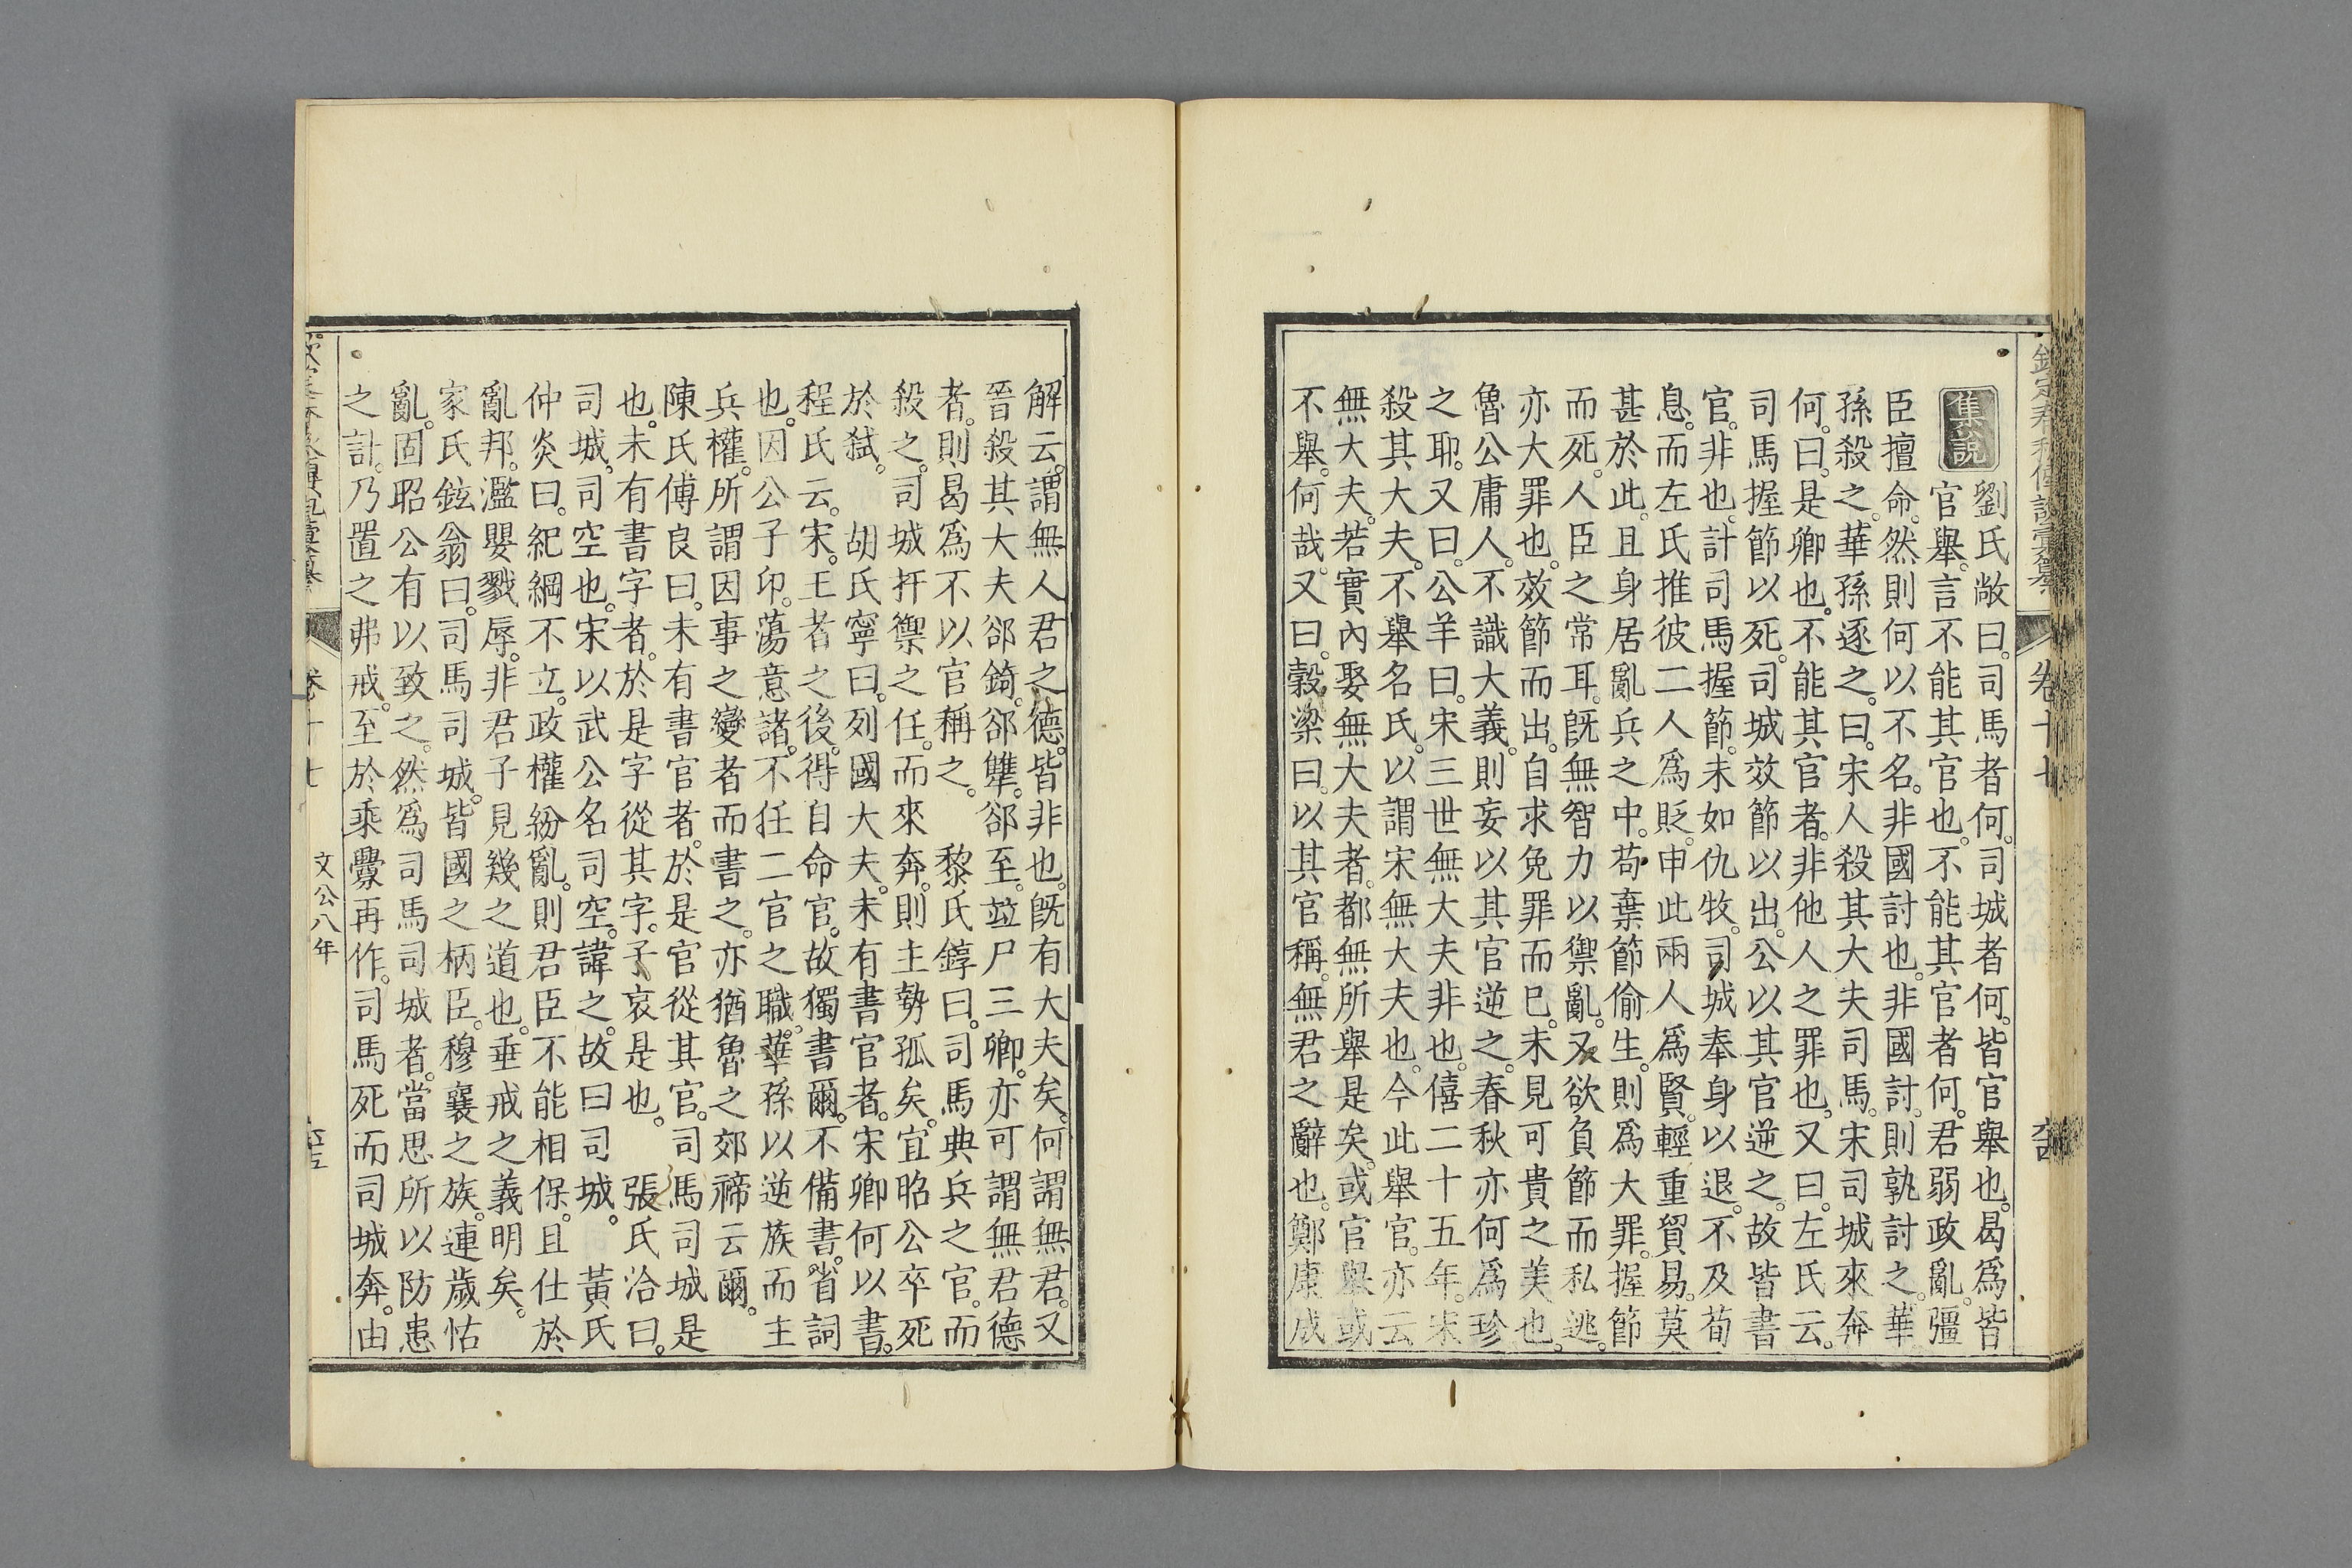 欽定春秋傳說彙纂 卷十七
集說
劉氏敞曰。司馬者何。司城者何。皆官舉也。曷爲皆
官舉。言不能其官也。不能其官者何。君弱政亂。彊
臣擅命。然則何以不名。非國討也。非國討。則孰討之。華
孫殺之。華孫逐之。曰。宋人殺其大夫司馬。宋司城來奔
何。曰。是卿也。不能其官者。非他人之罪也。又曰。左氏云。
司馬握節以死。司城效節以出。公以其官逆之。故皆書
官。非也。計司馬握節。未如仇牧。司城奉身以退。不及荀
息。而左氏推彼二人爲貶。申此兩人爲賢。輕重貿易。莫
甚於此。且身居亂兵之中。苟棄節偷生。則爲大罪。握節
而死。人臣之常耳。旣無智力以禦亂。又欲負節而私逃。
亦大罪也。效節而出。自求免罪而已。未見可貴之美也。
魯公庸人。不識大義。則妄以其官逆之。春秋亦何爲珍
之耶。又曰。公羊曰。宋三世無大夫非也。僖二十五年。宋
殺其大夫。不舉名氏。以謂宋無大夫也。今此舉官。亦云
無大夫。若實內娶無大夫者。都無所舉是矣。或官舉或
不舉。何哉。又曰。穀梁曰。以其官稱。無君之辭也。鄭康成
解云。謂無人君之德。皆非也。旣有大夫矣。何謂無君。又
晉殺其大夫郤錡。郤犨。郤至。竝尸三卿。亦可謂無君德
者。則曷爲不以官稱之。 黎氏錞曰。司馬典兵之官。而
殺之。司城扞禦之任。而來奔。則主勢孤矣。宜昭公卒死
於弑。 胡氏寧曰。列國大夫。未有書官者。宋卿何以書。
程氏云。宋。王者之後。得自命官。故獨書爾。不備書。省詞
也。因公子卬。蕩意諸。不任二官之職。華孫以逆族而主
兵權。所謂因事之變者而書之。亦猶魯之郊禘云爾。
陳氏傅良曰。未有書官者。於是官從其官。司馬司城是
也。未有書字者。於是字從其字。子哀是也。 張氏洽曰。
司城。司空也。宋以武公名司空。諱之。故曰司城。 黃氏
仲炎曰。紀綱不立。政權紛亂。則君臣不能相保。且仕於
亂邦。濫嬰戮辱。非君子見幾之道也。垂戒之義明矣。
家氏鉉翁曰。司馬司城。皆國之柄臣。穆襄之族。連歲怙
亂。固昭公有以致之。然爲司馬司城者。當思所以防患
之計。乃置之弗戒。至於乘釁再作。司馬死而司城奔。由
卷十七 文公八年